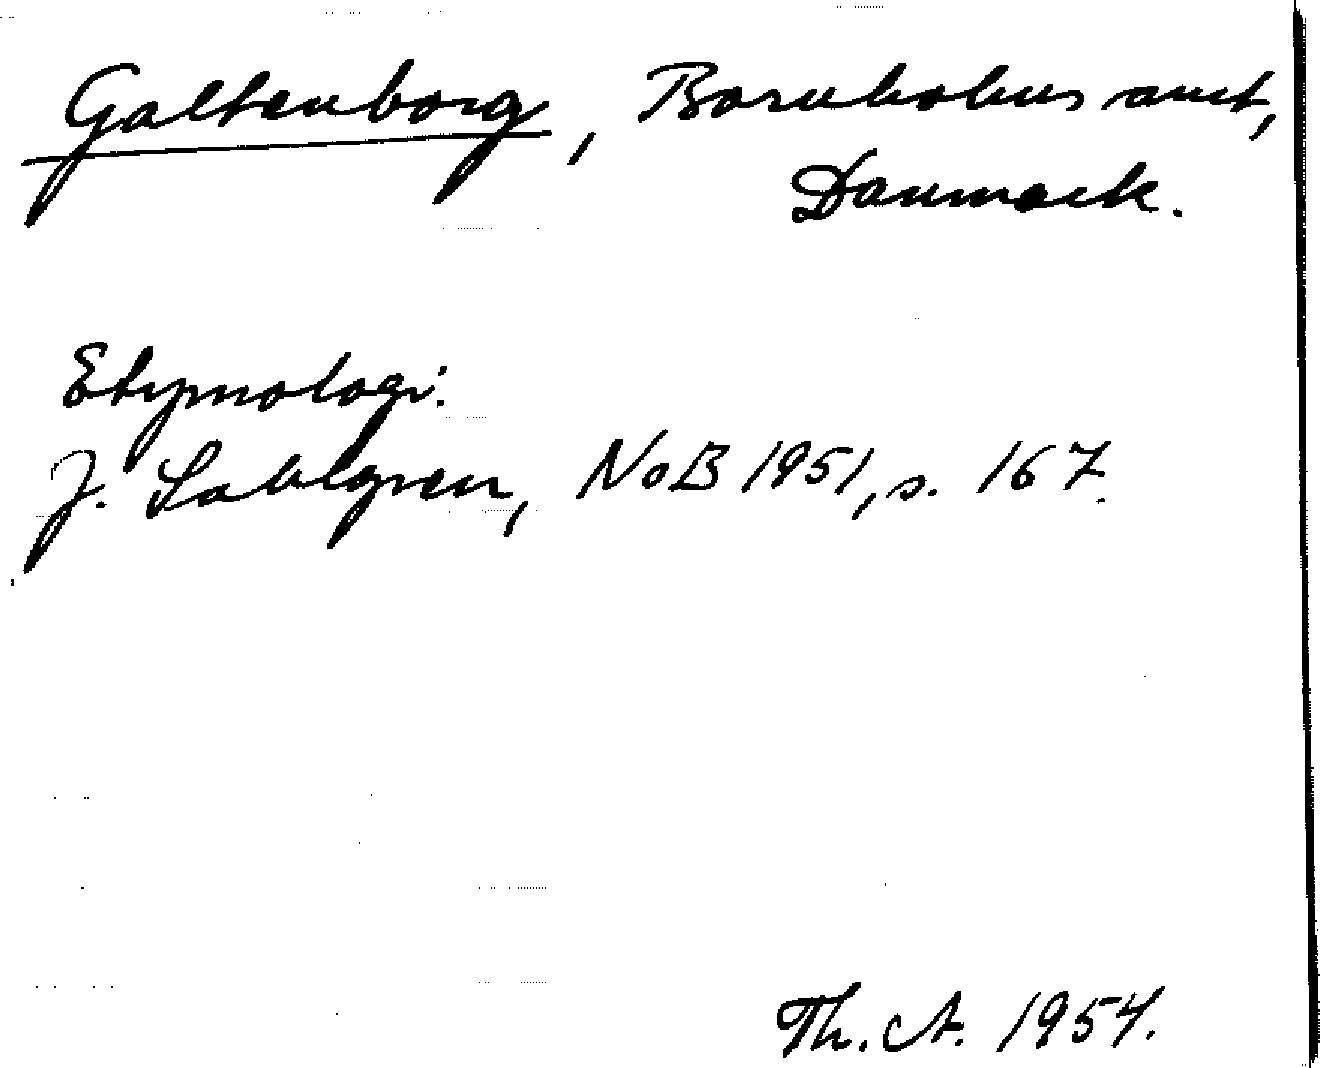 Galtenborg, Bornholms amt,
Danmark.
Etymologi:
J. Sahlgren, NoB 1951, s. 167.
Th. A. 1954.